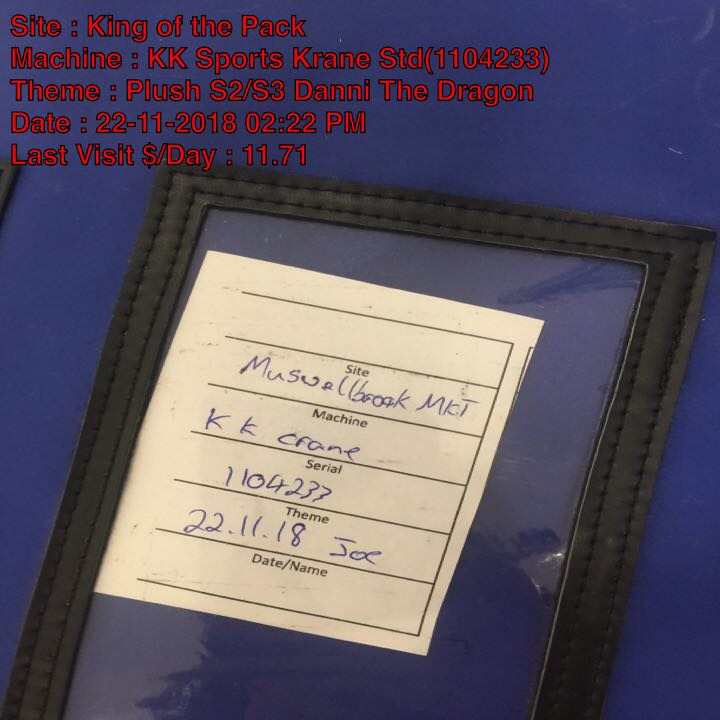 Site : King of the Pack
Machine : KK Sports Krane Std(1104233)
Theme : Plush S2/S3 Danni The Dragon
Date : 22-11-2018 02:22 PM
Last Visit $/Day : 11.71
Site
Muswellbrook MKT
Machine
K K crane
Serial
1104233
Theme
22.11.18 Joe
Date/Name